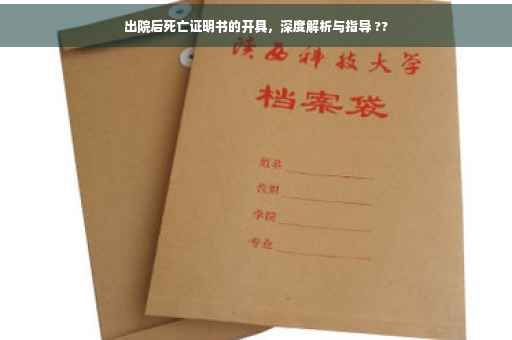 出院后死亡证明书的开具，深度解析与指导??
陕西科技大学
档案袋
姓名
学院
专业